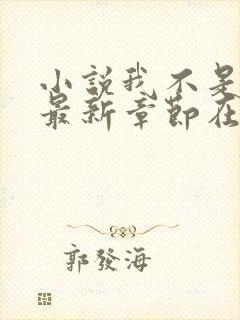 小說我不是
最新章節在
郭發海